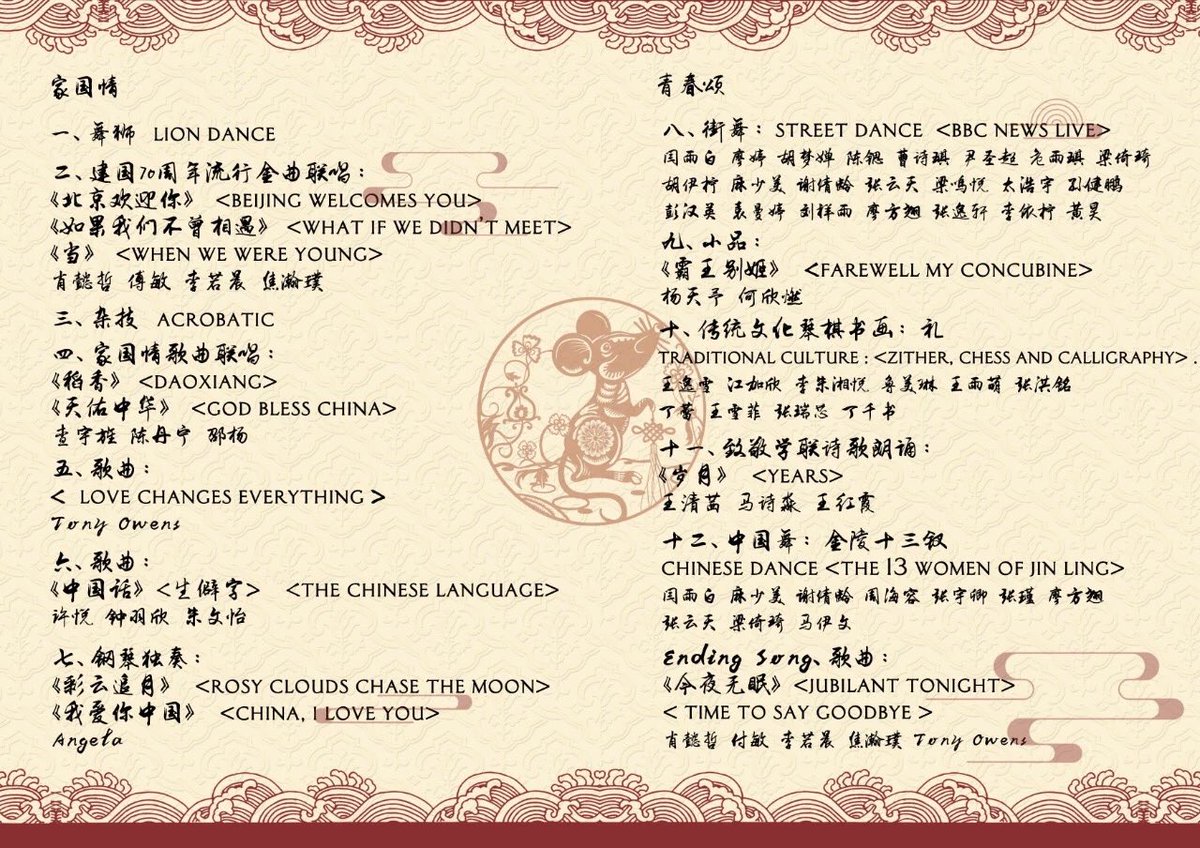 家国情
一、舞狮 LION DANCE
二、建国70周年流行金曲联唱：
《北京欢迎你》 <BEIJING WELCOMES YOU>
《如果我们不曾相遇》 <WHAT IF WE DIDN'T MEET>
《当》 <WHEN WE WERE YOUNG>
肖懿哲 傅敏 李若晨 焦瀚璞
三、杂技 ACROBATIC
四、家国情歌曲联唱：
《稻香》 <DAOXIANG>
《天佑中华》 <GOD BLESS CHINA>
查宇旌 陈丹宁 邵杨
五、歌曲：
< LOVE CHANGES EVERYTHING >
Tony Owens
六、歌曲：
《中国话》<生僻字> <THE CHINESE LANGUAGE>
许悦 钟羽欣 朱文怡
七、钢琴独奏：
《彩云追月》 <ROSY CLOUDS CHASE THE MOON>
《我爱你中国》 <CHINA, I LOVE YOU>
Angela
青春颂
八、街舞：STREET DANCE <BBC NEWS LIVE>
闫雨白 廖婷 胡梦婵 陈锶 曹诗琪 尹圣超 危雨琪 梁倚琦
胡伊柠 麻少美 谢倩龄 张云天 梁鸣悦 太浩宇 孙健鹏
彭汉英 袁曼婷 刘祥雨 廖方翘 张逸轩 李依柠 黄昊
九、小品：
《霸王别姬》 <FAREWELL MY CONCUBINE>
杨天予 何欣燃
十、传统文化琴棋书画：礼
TRADITIONAL CULTURE : <ZITHER, CHESS AND CALLIGRAPHY> .
王逸雪 江加欣 李朱湘悦 鲁美琳 王雨萌 张洪铭
丁蕾 王雪菲 张瑞芯 丁千书
十一、致敬学联诗歌朗诵：
《岁月》 <YEARS>
王清茁 马诗淼 王红霞
十二、中国舞：金陵十三钗
CHINESE DANCE <THE 13 WOMEN OF JIN LING>
闫雨白 麻少美 谢倩龄 周海容 张宇卿 张瑾 廖方翘
张云天 梁倚琦 马伊文
Ending Song、歌曲：
《今夜无眠》 <JUBILANT TONIGHT>
< TIME TO SAY GOODBYE >
肖懿哲 付敏 李若晨 焦瀚璞 Tony Owens